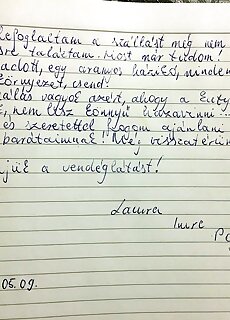 lefoglaltam a szállást még nem
talá́ltam. Most már tudom!
adott, egy aranyos háziés, minden
környezet, csend.
hálás vagyok azért, ahogy a
, nem lesz könnyű hazavinni
és szeretettel fogom ajánlani
barátaimnak! Még visszatérün
jük a vendéglátást!
Laura
Imre
05.09.